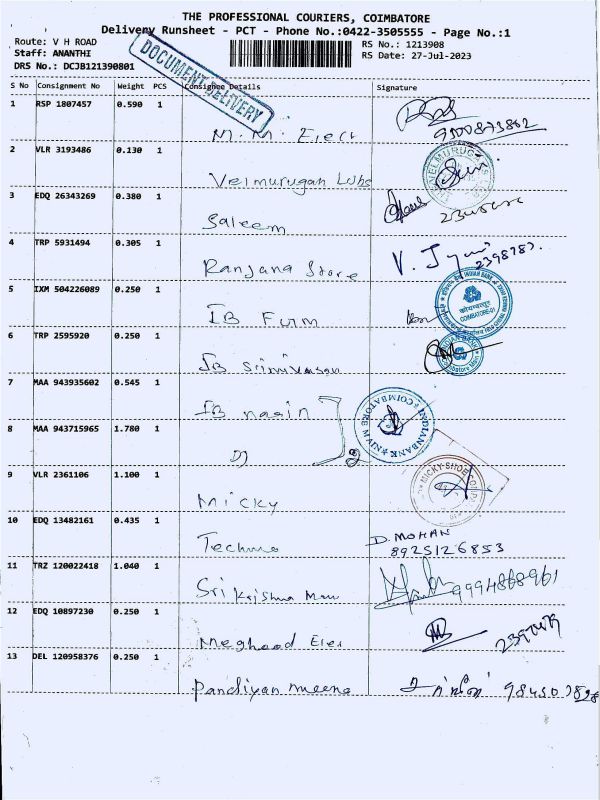 THE PROFESSIONAL COURIERS, COIMBATORE
Delivery Runsheet - PCT - Phone No.:0422-3505555 - Page No.:1
Route: V H ROAD
RS No.: 1213908
Staff: ANANTHI
RS Date: 27-Jul-2023
DRS No.: DCJB121390801
DOCUMENT DELIVERY
S No Consignment No Weight PCS Consignee Details Signature
1 RSP 1807457 0.590 1
M. M. Elect
2 VLR 3193486 0.130 1
Velmurugan
3 EDQ 26343269 0.380 1
Saleem
4 TRP 5931494 0.305 1
Ranjana Store V.
5 IXM 504226089 0.250 1
IB Furm
INDIAN BANK
COIMBATORE-01
6 TRP 2595920 0.250 1
INDIAN BANK
7 MAA 943935602 0.545 1
IB
INDIAN BANK COIMBATORE
8 MAA 943715965 1.780 1
MICKY SHOE
9 VLR 2361106 1.100 1
Micky
10 EDQ 13482161 0.435 1
Techno D. MOHAN
8925126853
11 TRZ 120022418 1.040 1
Sri Krishna 9994868961
12 EDQ 10897230 0.250 1
13 DEL 120958376 0.250 1
Pandiyan meena